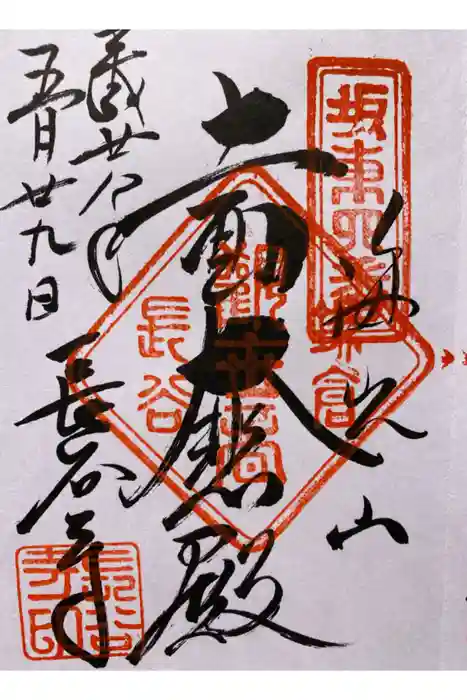 坂東四番
海光山
十一面大悲殿
鎌倉
観世音
長谷
平成廿八年
五月廿九日
長谷寺
長谷寺印